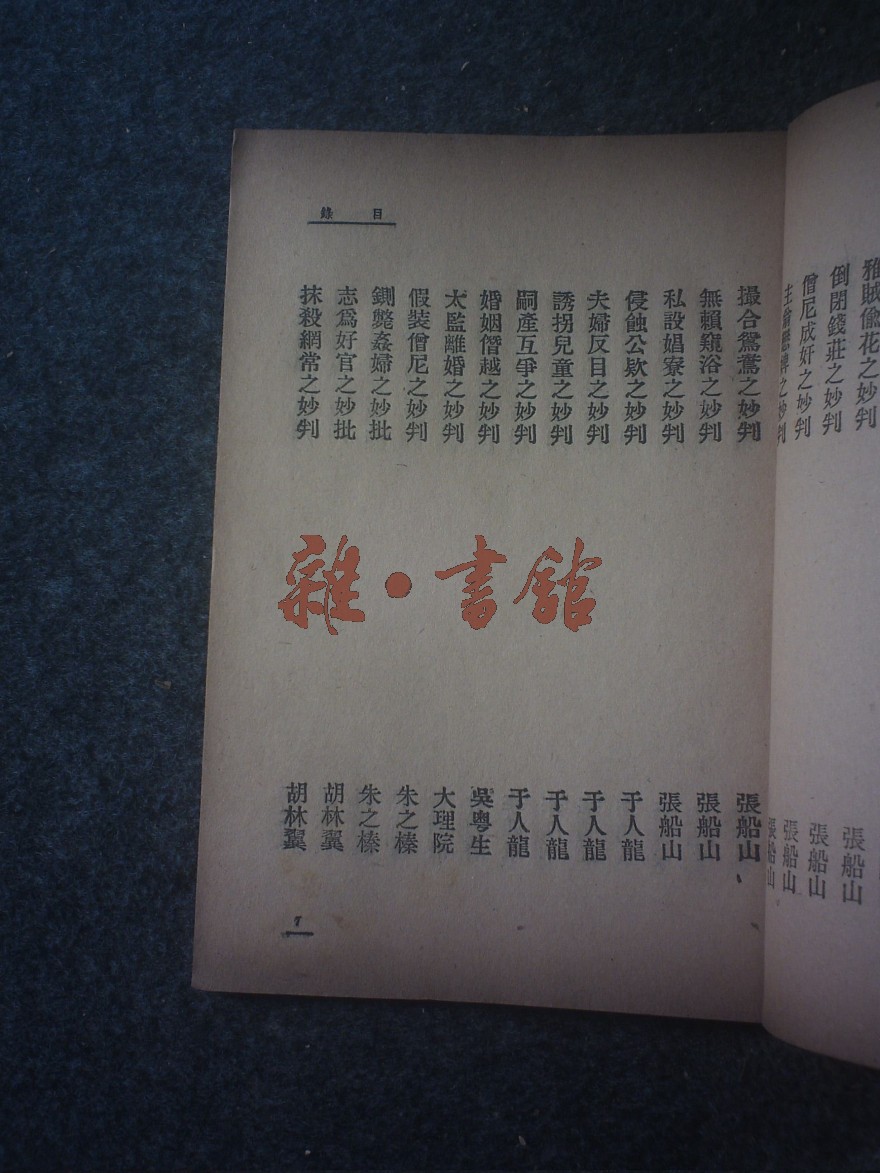 雅賊偸花之妙判 張船山
倒閉錢莊之妙判 張船山
僧尼成奸之妙判 張船山
之妙判 張船山
目錄
撮合鴛鴦之妙判 張船山
無賴窺浴之妙判 張船山
私設娼寮之妙判 張船山
侵蝕公欵之妙判 于人龍
夫婦反目之妙判 于人龍
誘拐兒童之妙判 于人龍
嗣產互爭之妙判 于人龍
婚姻僭越之妙判 吳粵生
太監離婚之妙判 大理院
假裝僧尼之妙判 朱之榛
鍘斃姦婦之妙批 朱之榛
志爲好官之妙批 胡林翼
抹殺網常之妙判 胡林翼
7
雜·書舘